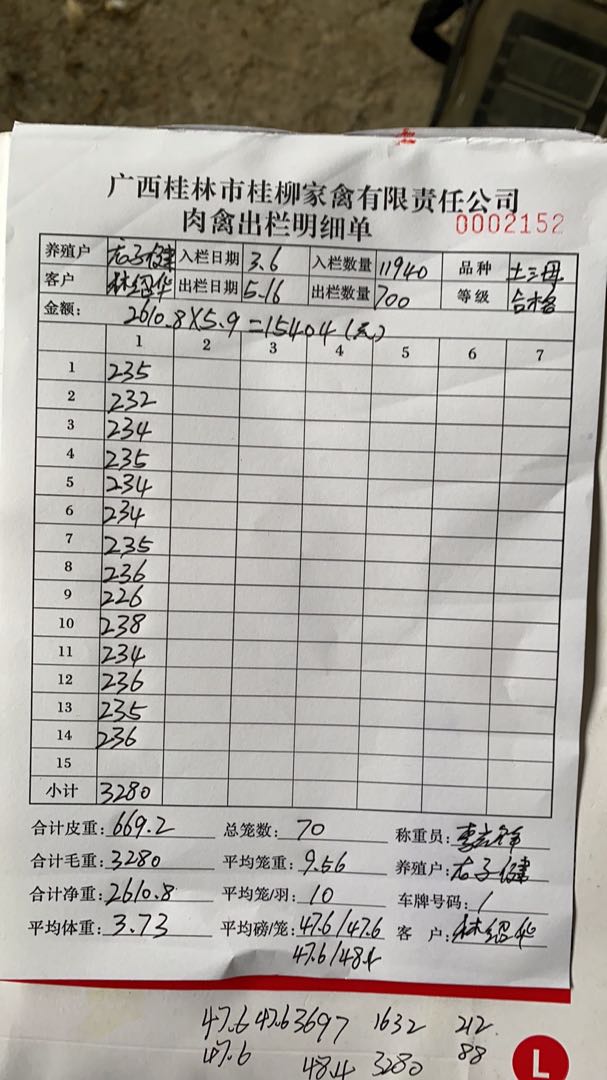 广西桂林市桂柳家禽有限责任公司
肉禽出栏明细单 0002152
养殖户 入栏日期 3.6 入栏数量 11940 品种 土三母
客户 林绍华 出栏日期 5.16 出栏数量 700 等级 合格
金额: 2610.8×5.9=15404(元)
1 2 3 4 5 6 7
1 235
2 232
3 234
4 235
5 234
6 234
7 235
8 236
9 226
10 238
11 234
12 236
13 235
14 236
15
小计 3280
合计皮重: 669.2 总笼数: 70 称重员:
合计毛重: 3280 平均笼重: 9.56 养殖户:
合计净重: 2610.8 平均笼/羽: 10 车牌号码: /
平均体重: 3.73 平均磅/笼: 47.6/47.6 客 户: 林绍华
47.6/48.4
47.6 47.6 3697 1632 212
47.6 48.4 3280 88
L